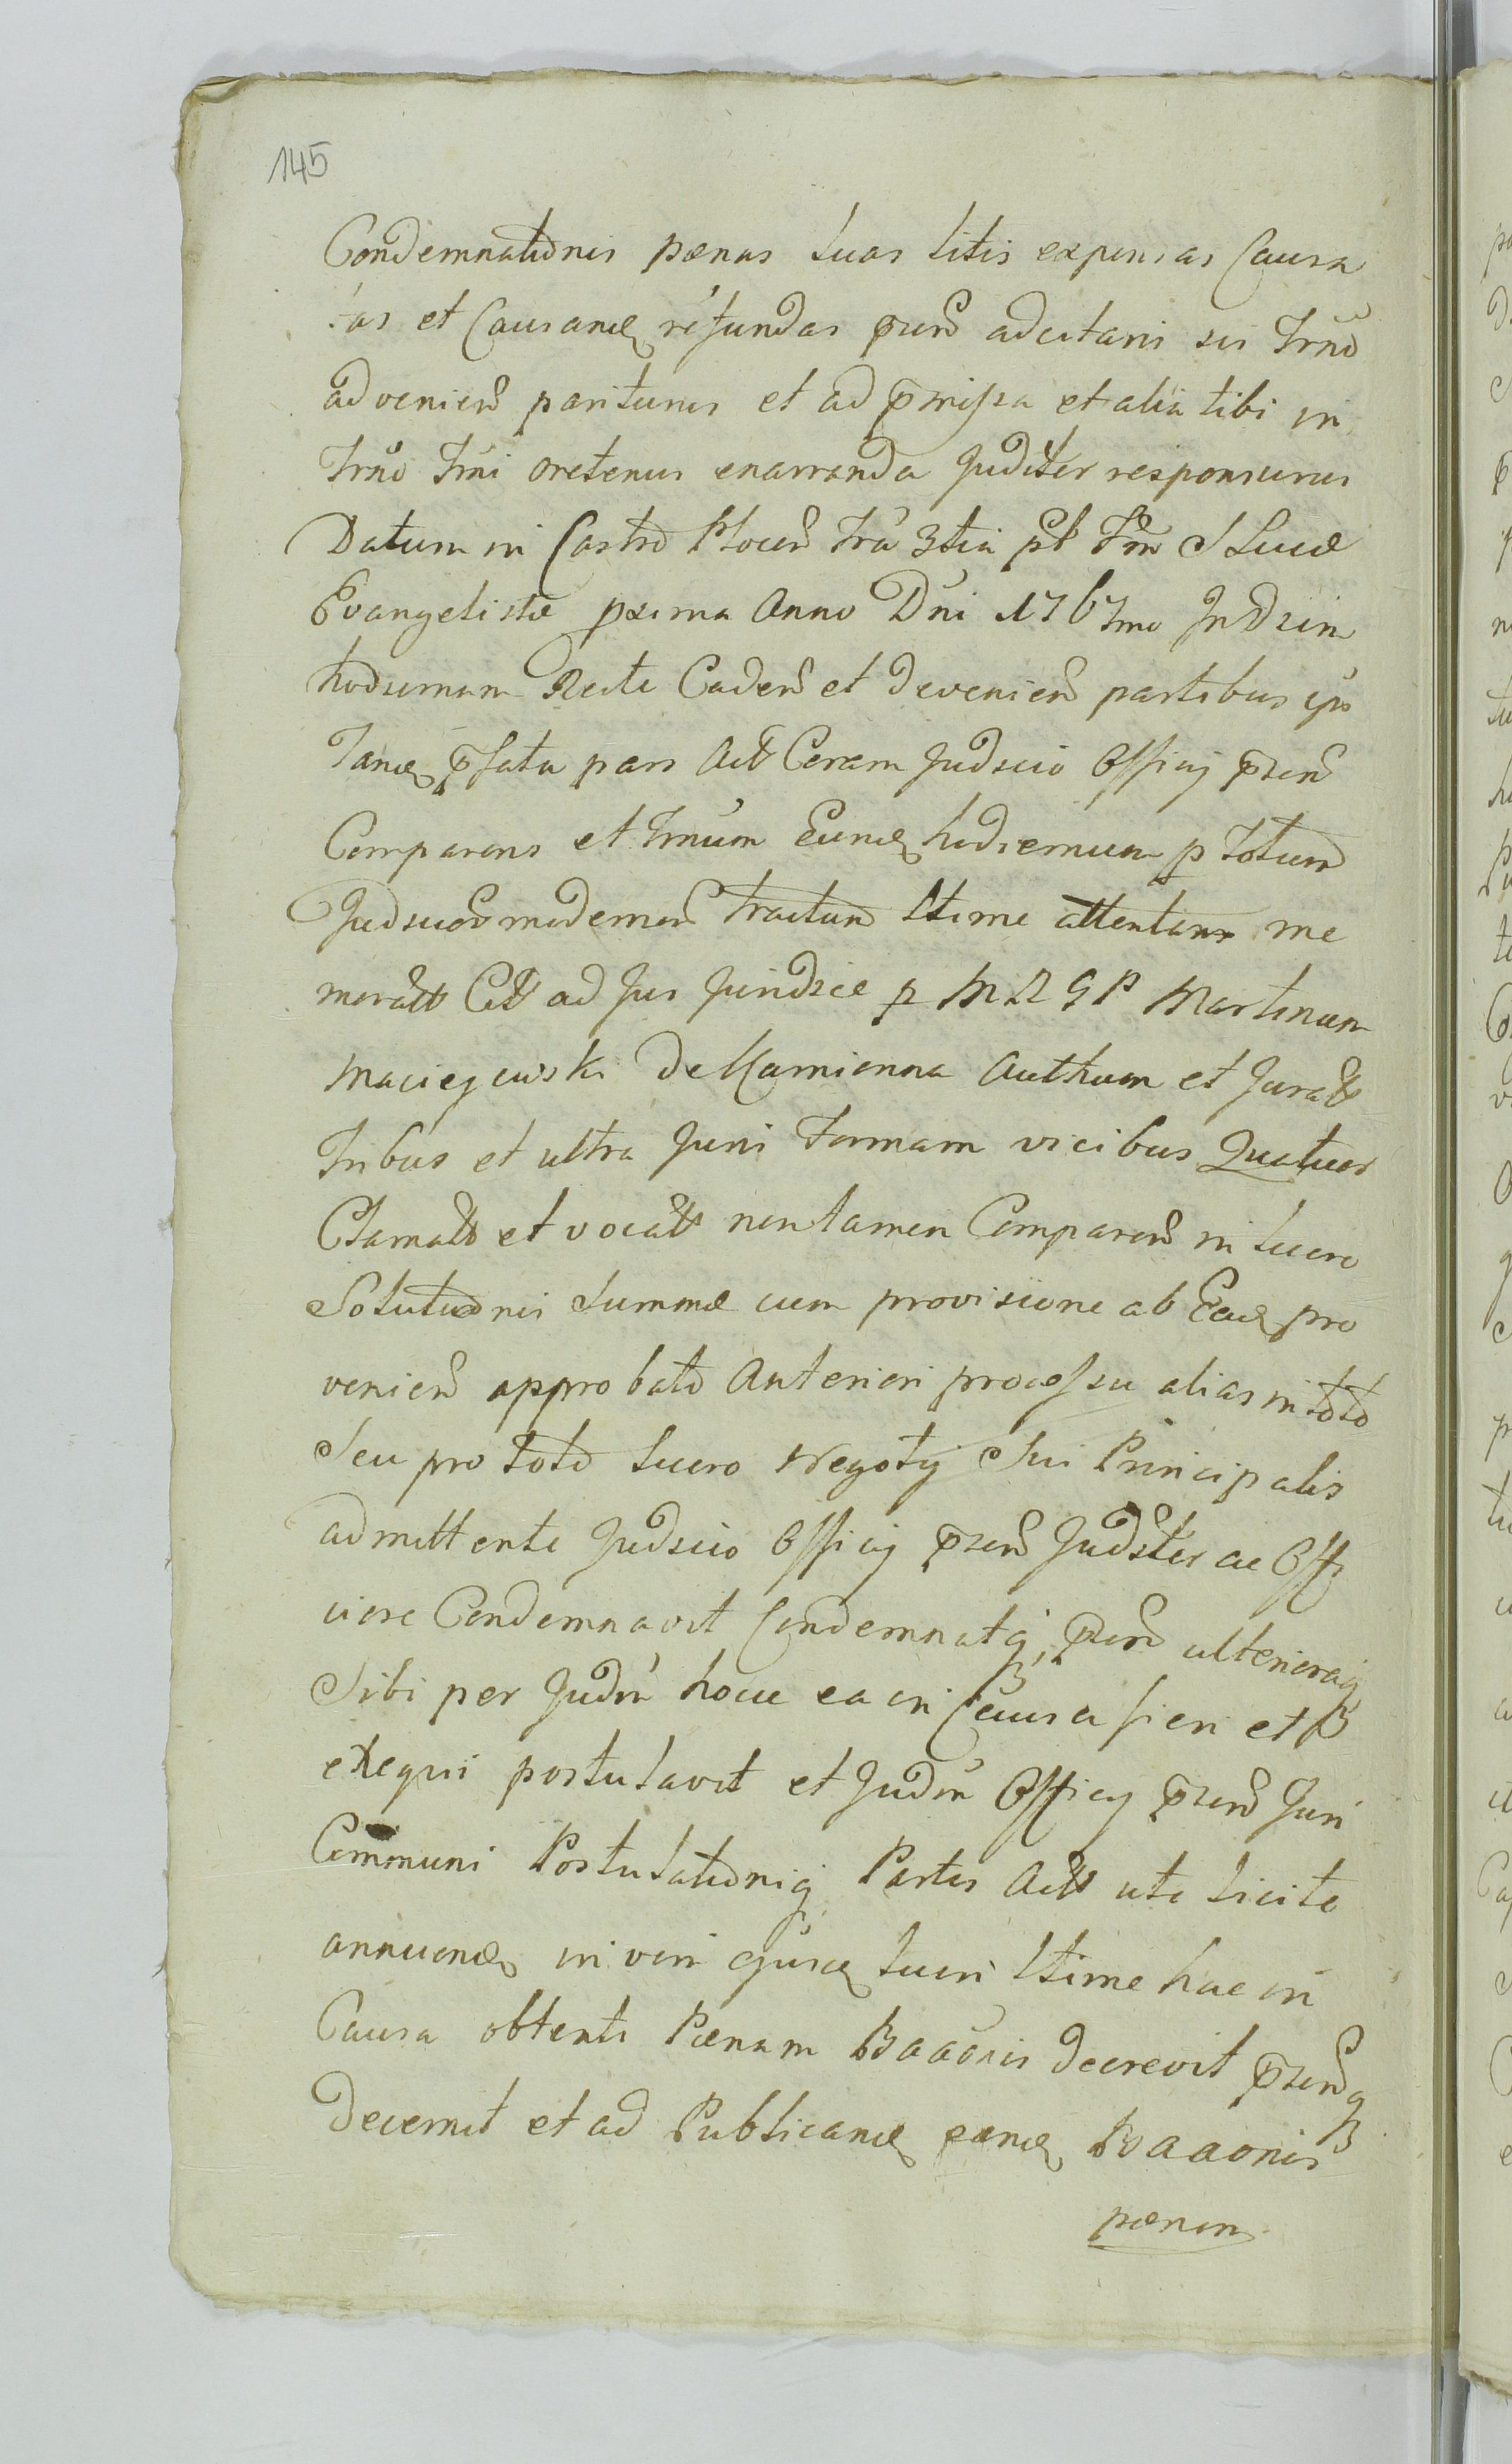 145
Condemnationis pœnas luas litis expensas Causa
tas et Causand refundas pñs adcitaris sis Trno
advenien pariturus et ad pmissa et alia tibi in
Trno Trni oretenus enarranda Juditer responsurus
Datum in Castro Plocen fra 3tia pt Fm S Lucæ
Evangelistæ pxima Anno Dni 1767mo In Dein
hodiernam Recte Caden et devenien partibus ips
pfata pars Act Coram Judicio Officij pñen
Comparens et Trnum Eund hodiernum p totum
modernum tractum ltime attentans me
moratt Citt ad Jus Juridice p M R G P Martinum
Maciejewski De Kamionna Authum et Juratt
Tribus et ultra Juris formam vicibus Quatuor
Clamatt et vocatt non tamen Comparen in lucro
Solutionis Summæ cum provisione ab Ead pro
venien approbato Anteriori processu alias in toto
Seu pro toto lucro Negotij Sui Principalis
admittente Judicio Officij pñen Judster ac Offi
ciose Condemnavit Condemnatq pñen ulterioraq
Sibi per Judm hocce ea in Causa fieri et
exequi postulavit et Judm Officij pñen Juri
Communi Postulationiq Partis Actt uti licite
annuend in vim ejusd lucri ltime hac in
Causa obtenti Pœnam Baaonis decrevit pñenq
Decernit et ad Publicand eand Baaonis
pœnam